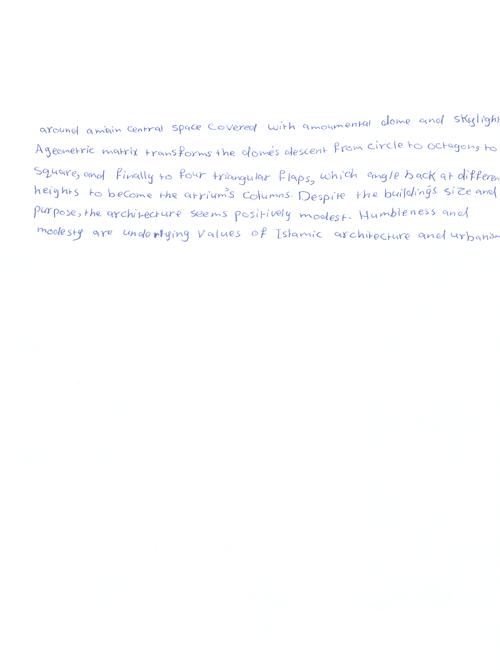 around a main central space covered with a moumental dome and skylight
A geometric matrix transforms the dome's descent from circle to octagons to
square, and finally to four triangular flaps, which angle back at differen
heights to become the atrium's columns. Despite the building's size and
purpose, the architecture seems positively modest. Humbleness and
modesty are underlying values of Islamic architecture and urbanism